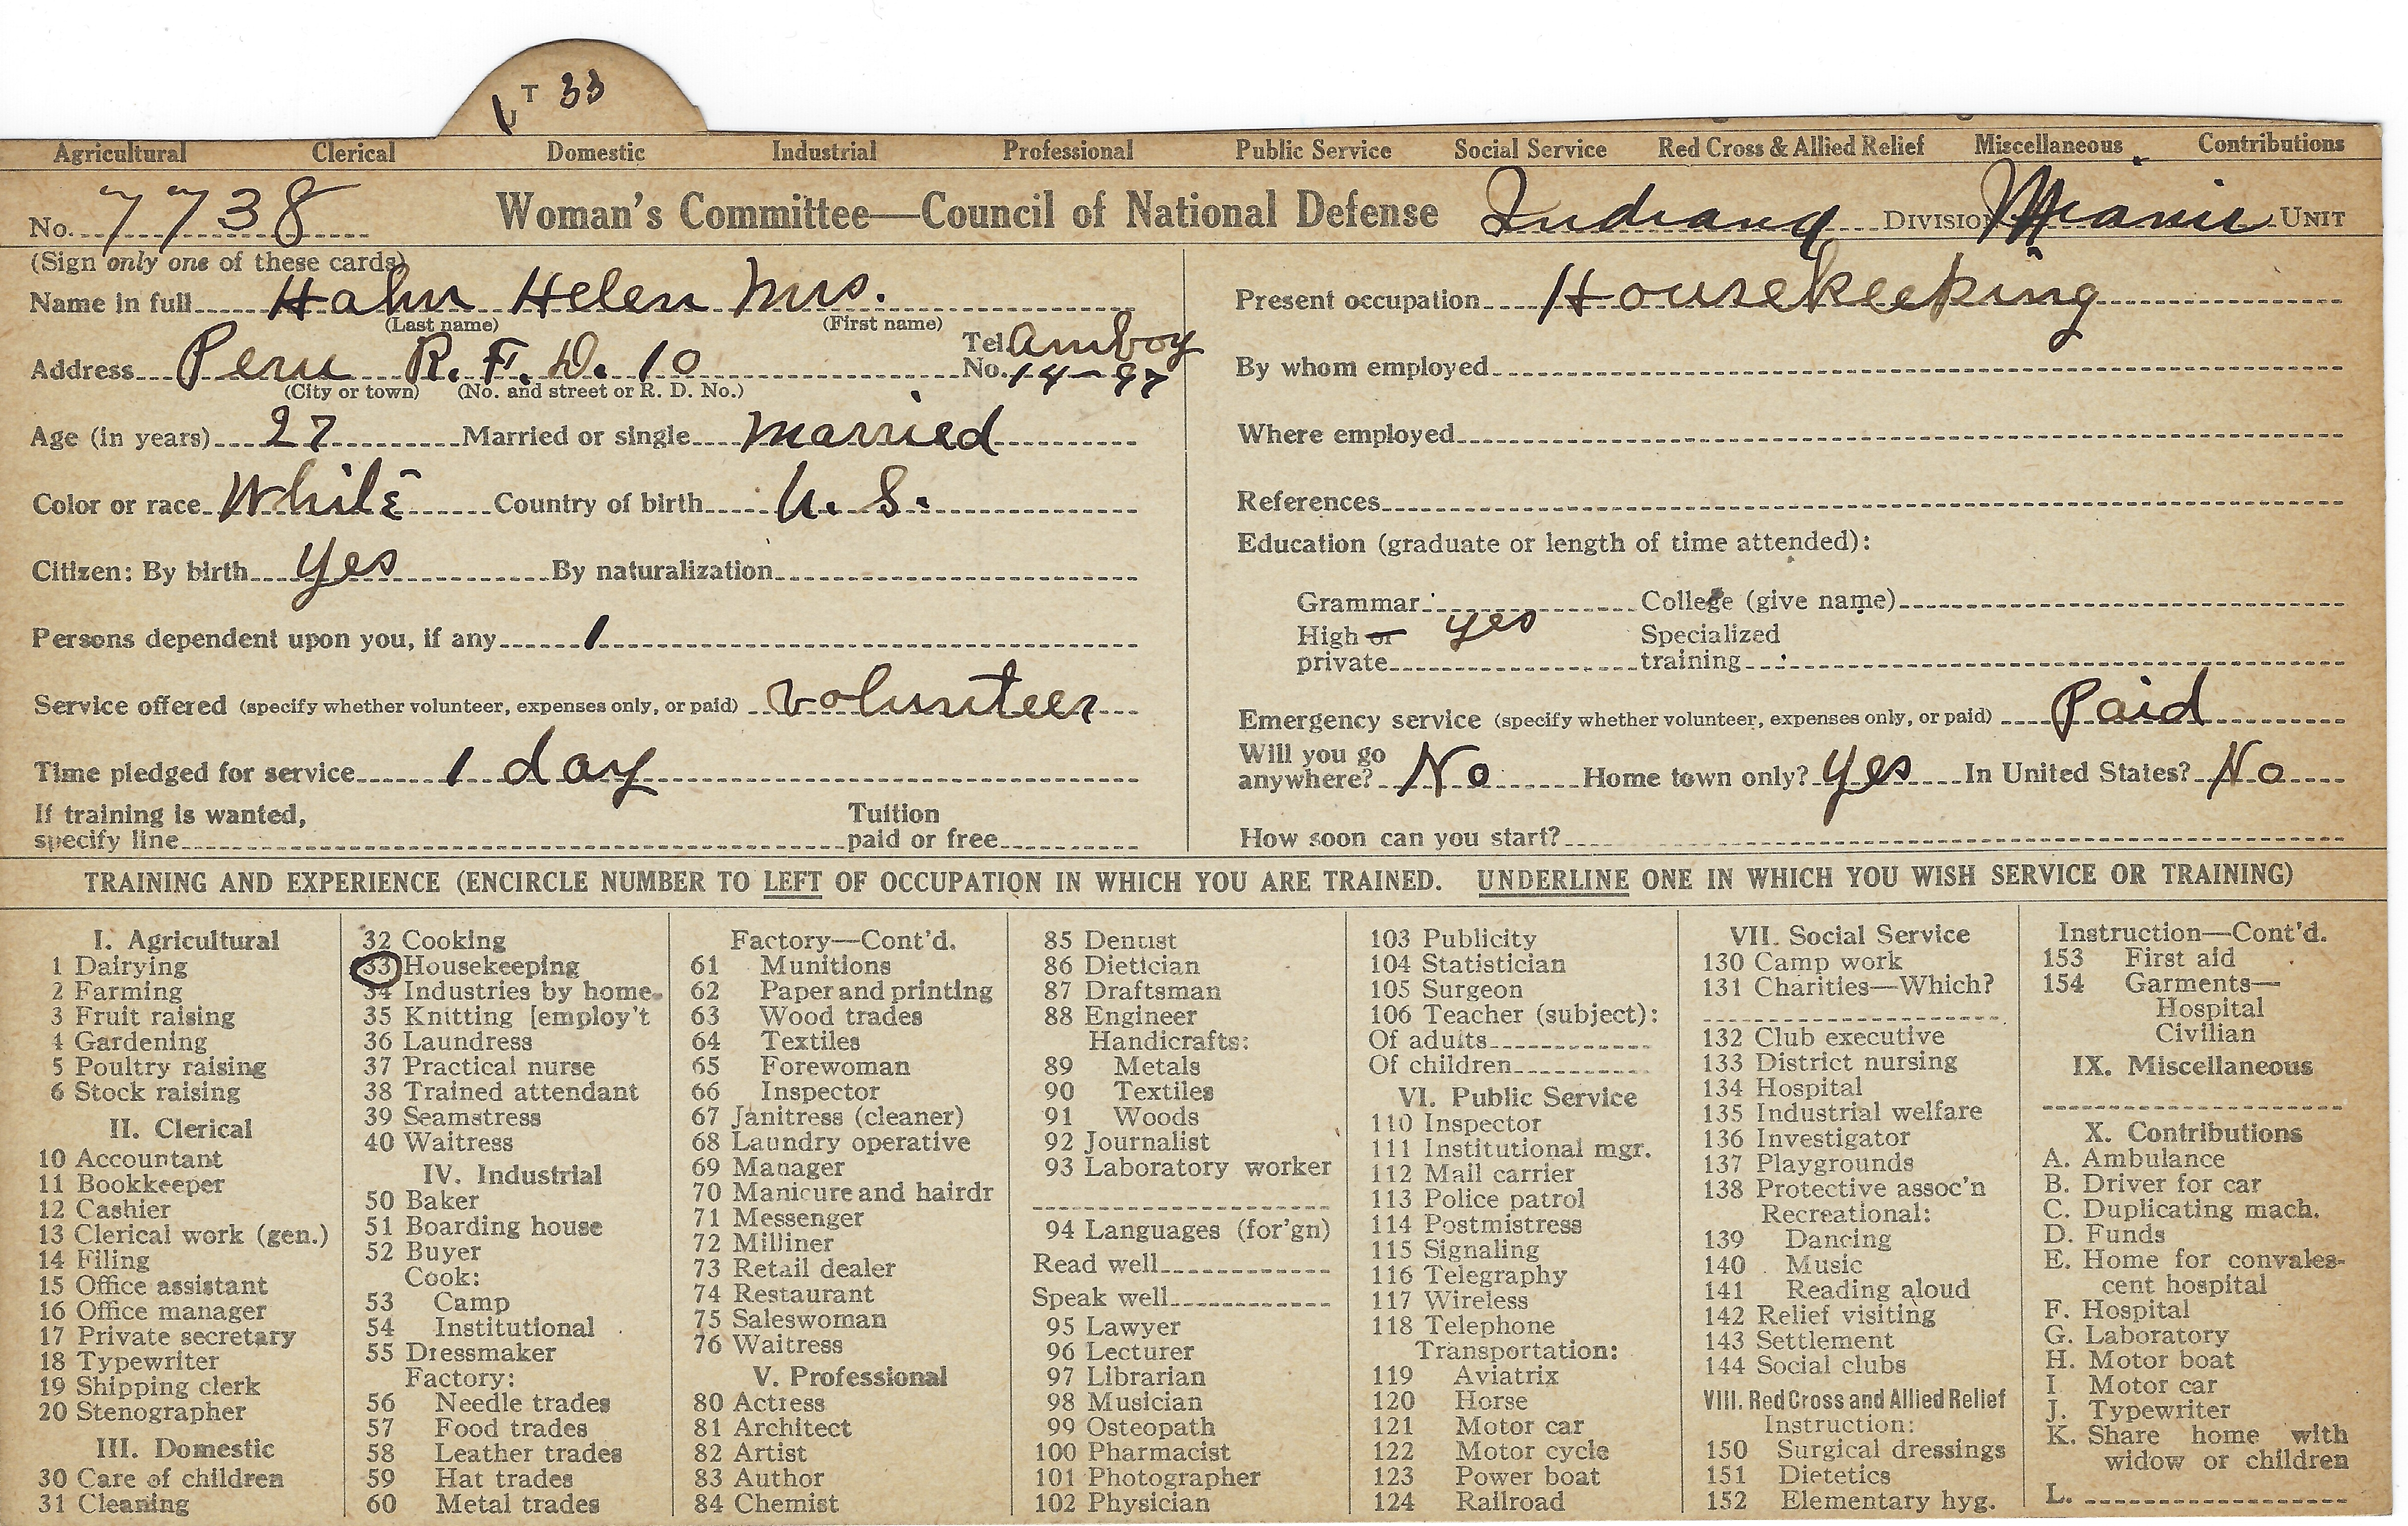 T 33
U
Agricultural Clerical Domestic Industrial Professional Public Service Social Service Red Cross & Allied Relief Miscellaneous Contributions
No. 7738 Woman's Committee—Council of National Defense Indiana DIVISION Miami UNIT
(Sign only one of these cards)
Name in full Hahn Helen Mrs.
(Last name) (First name)
Address Peru R.F.D. 10 Tel. No. Amboy 14-97
(City or town) (No. and street or R. D. No.)
Age (in years) 27 Married or single married
Color or race White Country of birth U.S.
Citizen: By birth yes By naturalization
Persons dependent upon you, if any 1
Service offered (specify whether volunteer, expenses only, or paid) volunteer
Time pledged for service 1 day
If training is wanted, specify line Tuition paid or free
Present occupation Housekeeping
By whom employed
Where employed
References
Education (graduate or length of time attended):
Grammar College (give name)
High or private yes Specialized training
Emergency service (specify whether volunteer, expenses only, or paid) Paid
Will you go anywhere? No Home town only? yes In United States? No
How soon can you start?
TRAINING AND EXPERIENCE (ENCIRCLE NUMBER TO LEFT OF OCCUPATION IN WHICH YOU ARE TRAINED. UNDERLINE ONE IN WHICH YOU WISH SERVICE OR TRAINING)
I. Agricultural
1 Dairying
2 Farming
3 Fruit raising
4 Gardening
5 Poultry raising
6 Stock raising
II. Clerical
10 Accountant
11 Bookkeeper
12 Cashier
13 Clerical work (gen.)
14 Filing
15 Office assistant
16 Office manager
17 Private secretary
18 Typewriter
19 Shipping clerk
20 Stenographer
III. Domestic
30 Care of children
31 Cleaning
32 Cooking
33 Housekeeping
34 Industries by home-
35 Knitting [employ't
36 Laundress
37 Practical nurse
38 Trained attendant
39 Seamstress
40 Waitress
IV. Industrial
50 Baker
51 Boarding house
52 Buyer
Cook:
53 Camp
54 Institutional
55 Dressmaker
Factory:
56 Needle trades
57 Food trades
58 Leather trades
59 Hat trades
60 Metal trades
Factory—Cont'd.
61 Munitions
62 Paper and printing
63 Wood trades
64 Textiles
65 Forewoman
66 Inspector
67 Janitress (cleaner)
68 Laundry operative
69 Manager
70 Manicure and hairdr
71 Messenger
72 Milliner
73 Retail dealer
74 Restaurant
75 Saleswoman
76 Waitress
V. Professional
80 Actress
81 Architect
82 Artist
83 Author
84 Chemist
85 Dentist
86 Dietician
87 Draftsman
88 Engineer
Handicrafts:
89 Metals
90 Textiles
91 Woods
92 Journalist
93 Laboratory worker
94 Languages (for'gn)
Read well
Speak well
95 Lawyer
96 Lecturer
97 Librarian
98 Musician
99 Osteopath
100 Pharmacist
101 Photographer
102 Physician
103 Publicity
104 Statistician
105 Surgeon
106 Teacher (subject):
Of adults
Of children
VI. Public Service
110 Inspector
111 Institutional mgr.
112 Mail carrier
113 Police patrol
114 Postmistress
115 Signaling
116 Telegraphy
117 Wireless
118 Telephone
Transportation:
119 Aviatrix
120 Horse
121 Motor car
122 Motor cycle
123 Power boat
124 Railroad
VII. Social Service
130 Camp work
131 Charities—Which?
132 Club executive
133 District nursing
134 Hospital
135 Industrial welfare
136 Investigator
137 Playgrounds
138 Protective assoc'n
Recreational:
139 Dancing
140 Music
141 Reading aloud
142 Relief visiting
143 Settlement
144 Social clubs
VIII. Red Cross and Allied Relief
Instruction:
150 Surgical dressings
151 Dietetics
152 Elementary hyg.
Instruction—Cont'd.
153 First aid
154 Garments—
Hospital
Civilian
IX. Miscellaneous
X. Contributions
A. Ambulance
B. Driver for car
C. Duplicating mach.
D. Funds
E. Home for convales-
cent hospital
F. Hospital
G. Laboratory
H. Motor boat
I Motor car
J. Typewriter
K. Share home with
widow or children
L.